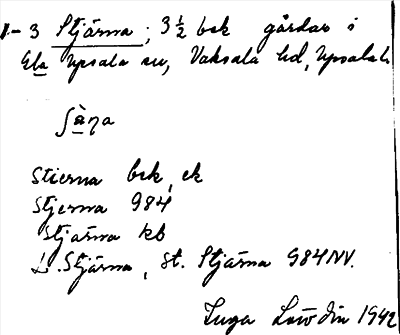 1-3 Stjärna ; 3 1/2 bsk gårdar i
Gla Upsala sn, Vaksala hd, Upsala l.
ʃà̱ɳa
Stierna bsk, ek
Stjerna 984
Stjärna kb
L. Stjärna, St. Stjärna 984NV.
Inga Löwdin 1942